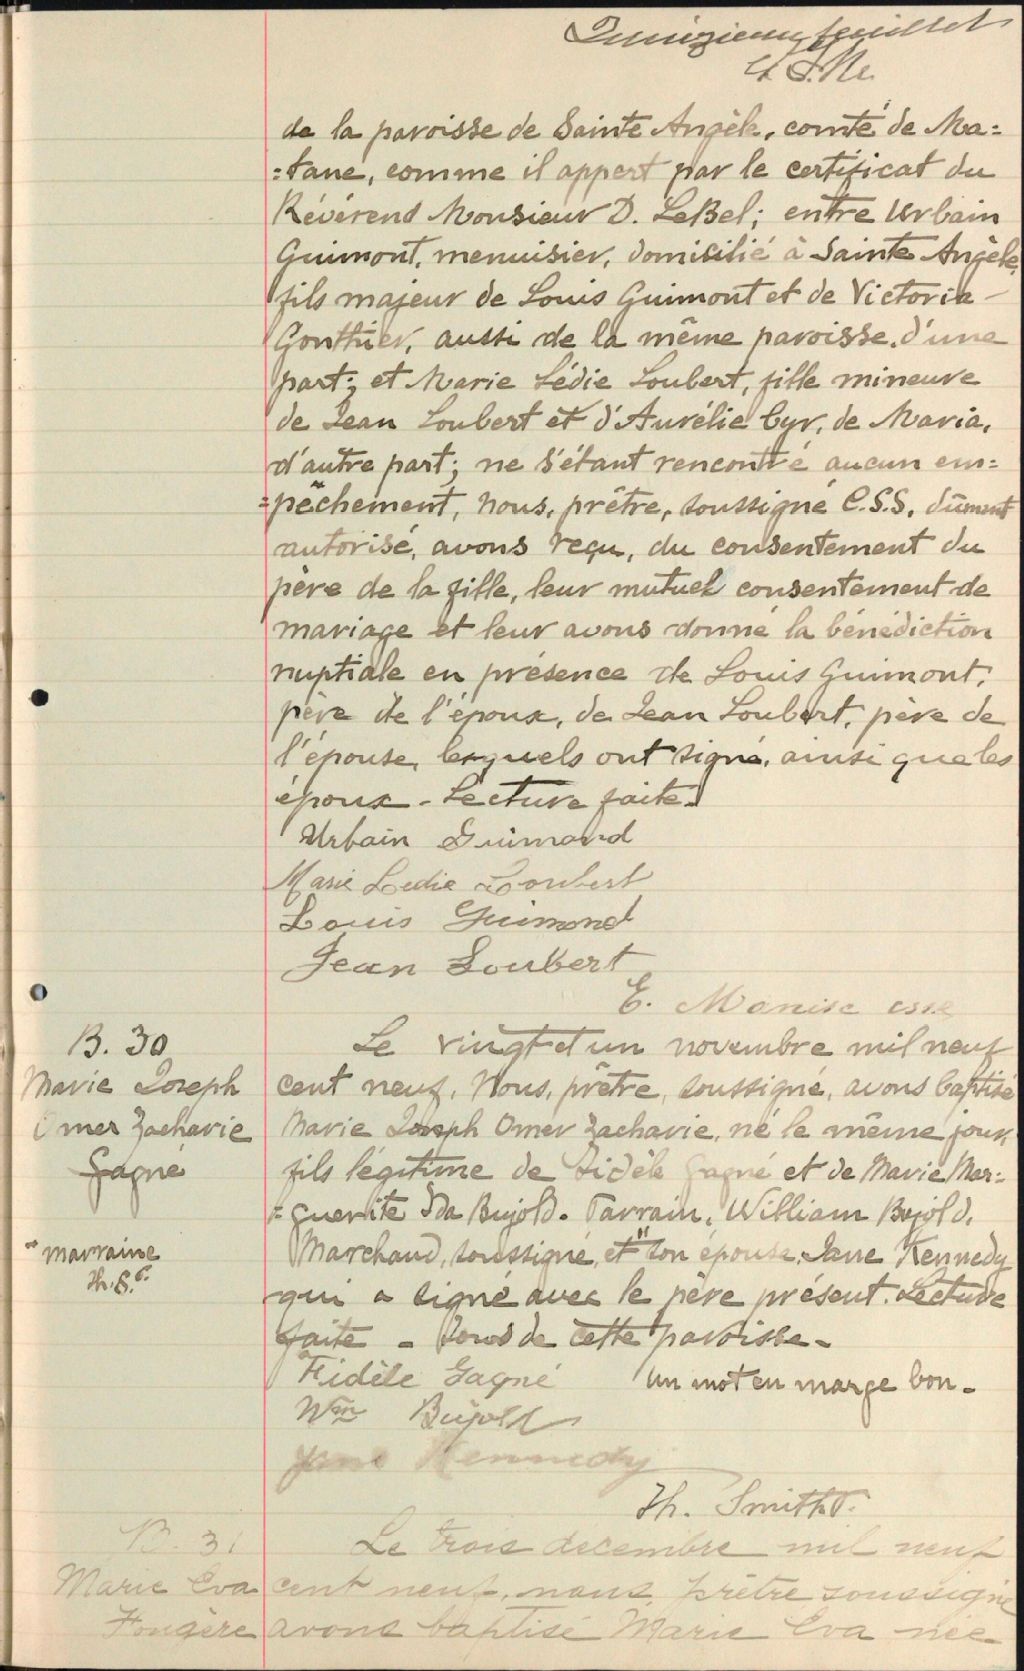 Quinzième feuillet
de la paroisse de Sainte Angèle, comté de Ma=
=tane, comme il appert par le certificat du
Révérend Monsieur D. LeBel; entre Urbain
Guimont, menuisier, domicilié à Sainte Angèle,
fils majeur de Louis Guimont et de Victoria
Gonthier, aussi de la même paroisse, d'une
part; et Marie Lédie Loubert, fille mineure
de Jean Loubert et d'Aurélie Cyr, de Maria,
d'autre part; ne s'étant rencontré aucun em=
=pêchement, Nous, prêtre, soussigné C.S.S. dûment
autorisé, avons reçu, du consentement du
père de la fille, leur mutuel consentement de
mariage et leur avons donné la bénédiction
nuptiale en présence de Louis Guimont,
père de l'époux, de Jean Loubert, père de
l'épouse, lesquels ont signé, ainsi que les
époux - Lecture faite.
Urbain Guimond
Marie Ledie Loubert
Louis Guimond
Jean Loubert
E. cssp
B. 30
Marie Joseph
Omer Zacharie
Gagné
Le vingt et un novembre mil neuf
cent neuf, Nous, prêtre, soussigné, avons baptisé
Marie Joseph Omer Zacharie, né le même jour,
fils légitime de Fidèle Gagné et de Marie Mar=
=guerite Ida Bujold. Parrain, William Bujold,
Marchand, soussigné, et " son épouse, Jane Kennedy
qui a signé avec le père présent. Lecture
faite - Tous de cette paroisse -
" marraine
Th. S.
Fidèle Gagné Un mot en marge bon -
Wm Bujold
Jane Kennedy
Th. Smith
B. 31
Marie Eva
Fougère
Le trois décembre mil neuf
cent neuf, nous, prêtre soussigné
avons baptisé Marie Eva née